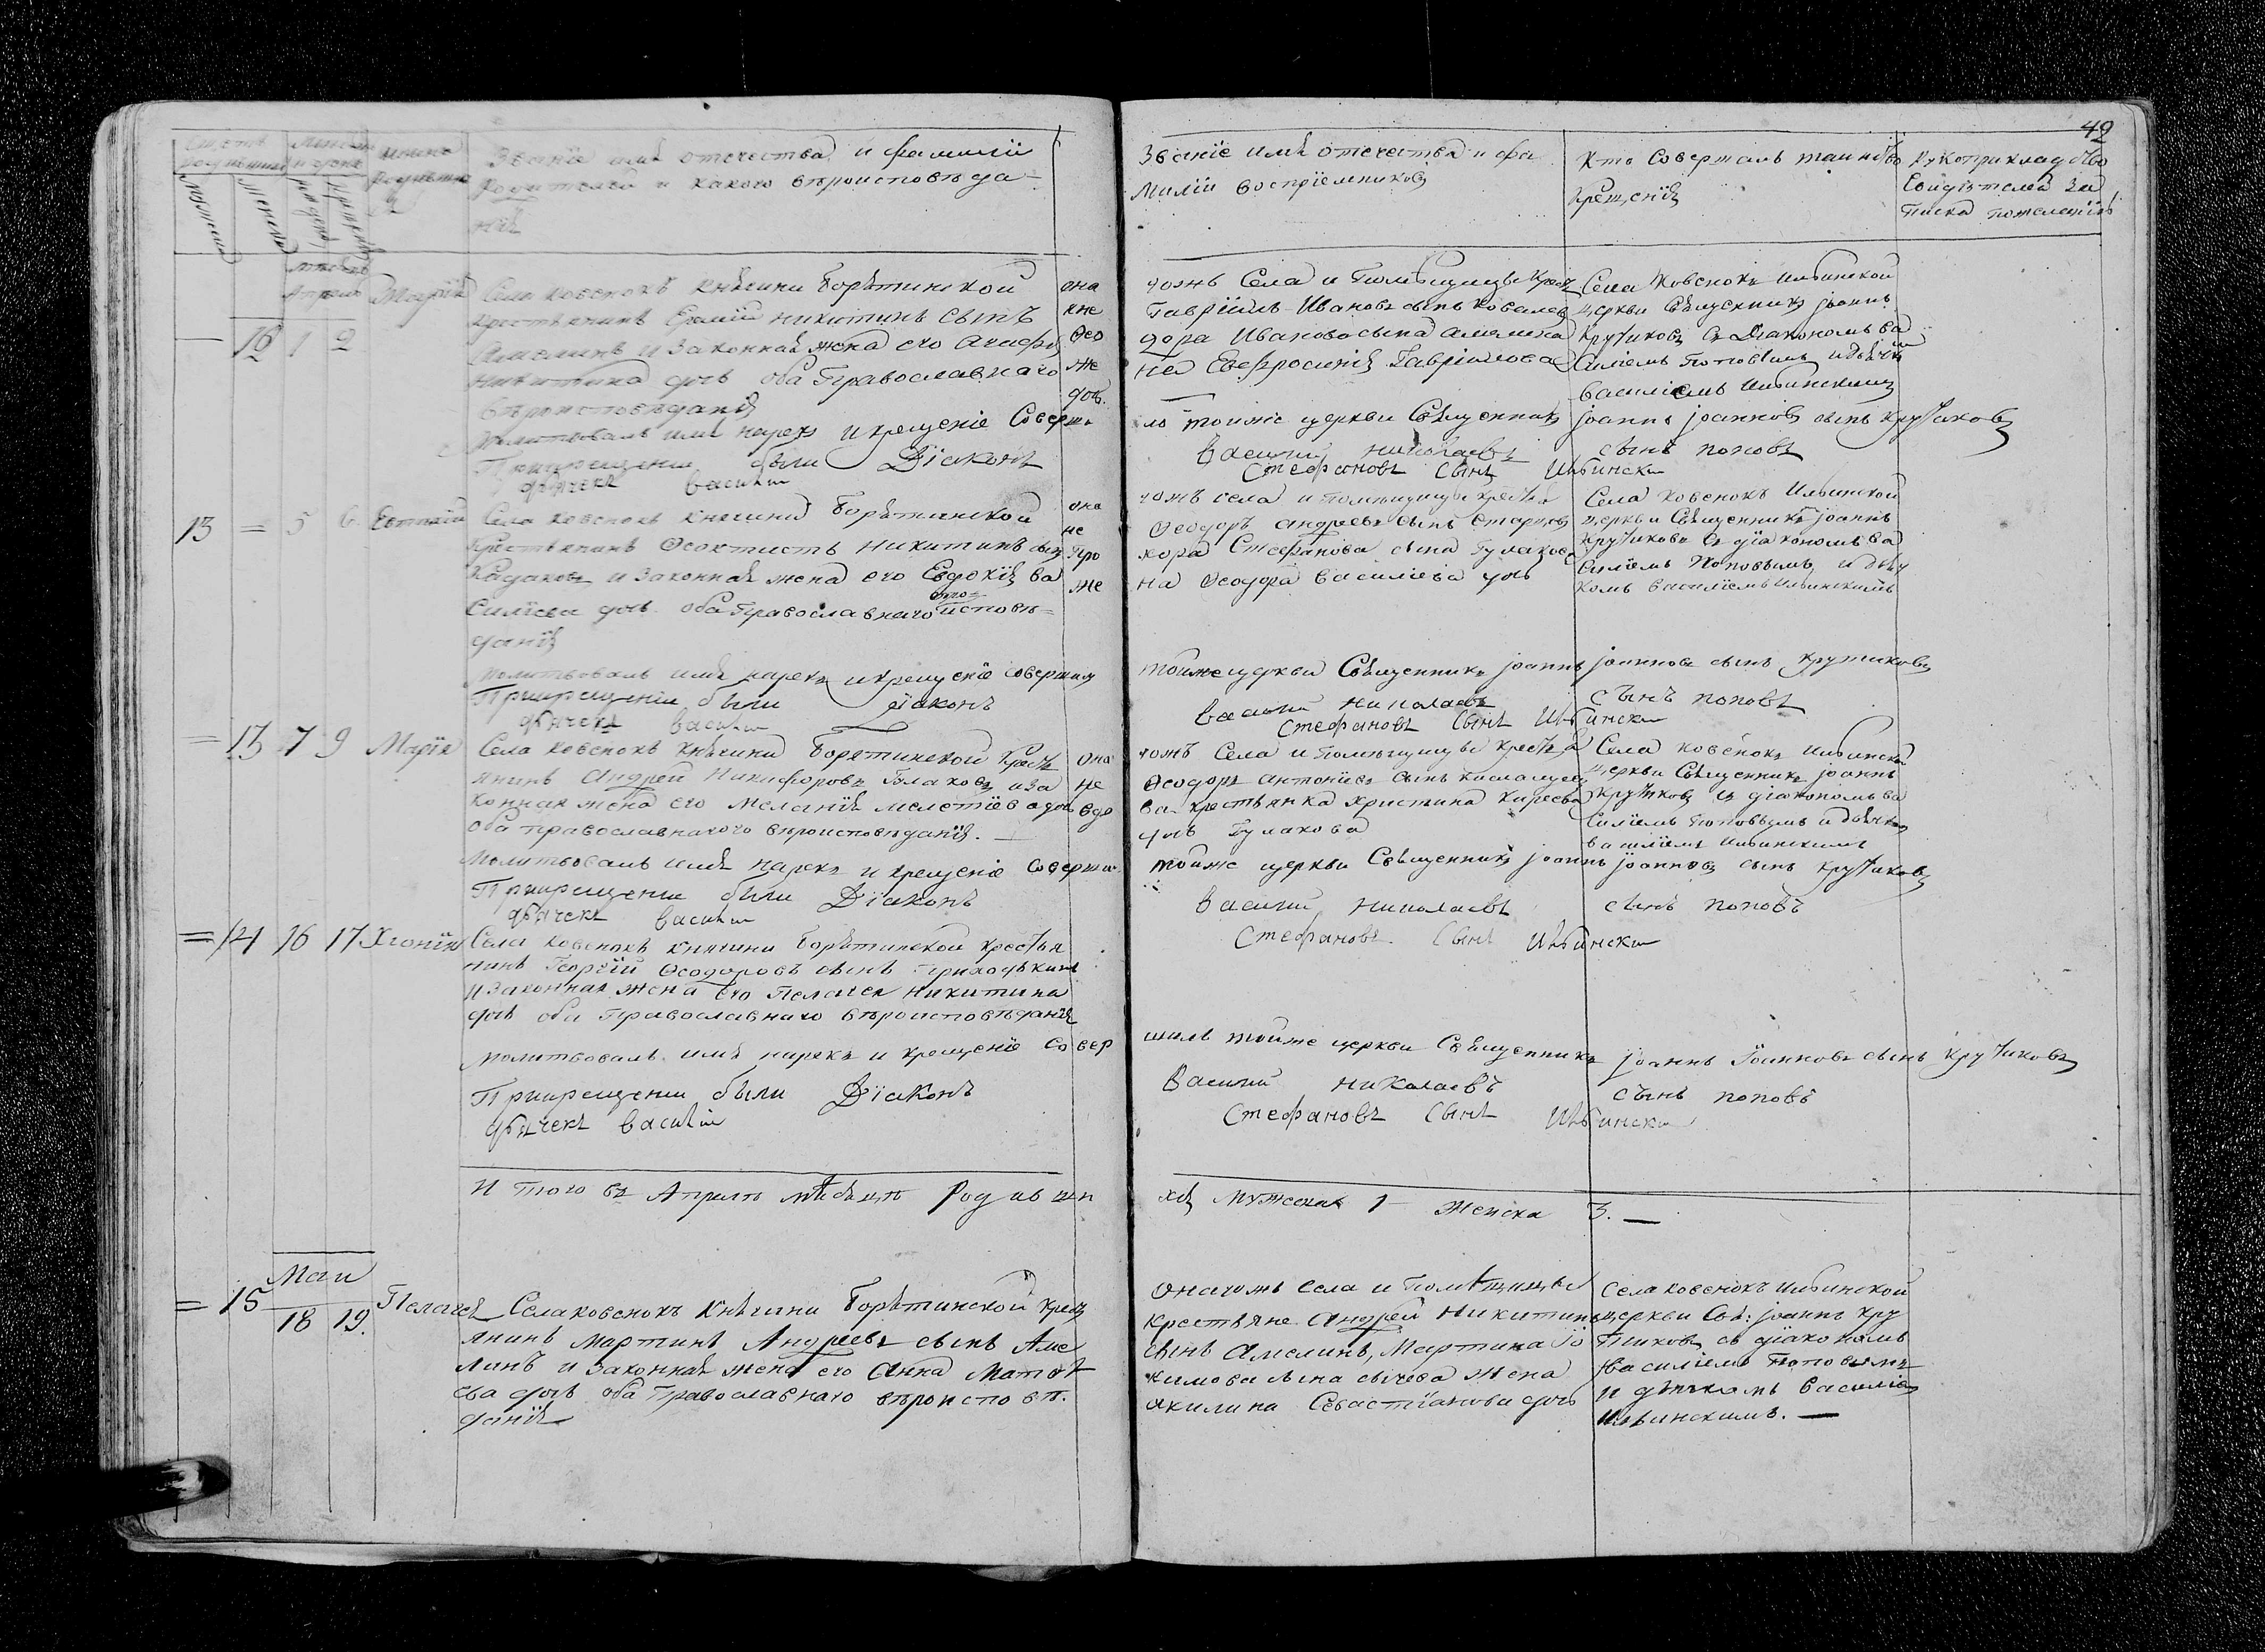 49
Счетъ родившихся
Мѣсяцъ и день
имяна родившихся
Званїе имя отечества и фамилїи
родителей и какого вѣроисповѣда-
нїя
Званїе имя отечества и фа
милїи воспрїемниковъ
Кто совершалъ таинство
крещенїя
Рукоприкладство
свидѣтелей за
писка пожеланїю
мужеска
женска
рожденїя
крещенїя
Апрель
— 12 1 2 Марїя
Села Ковенокъ княгини Борятинской
крестьянинъ Ермїй Никитинъ сынъ
Амелинъ и законная жена его Агафья
Никитина дочь оба православнаго
вѣроисповѣданїя
она
кне
Ѳео
же
дочь.
гожъ села и помѣщицы крест
Гаврїилъ Ивановъ сынъ Ковалев
дора Иванова сына Амелина
на Евфросинїя Гаврїилова
Села Ковенокъ Ильинской
церкви священникъ Іоаннъ
Крутиковъ съ дїакономъ Ва
силїемъ Поповымъ и дьячком
Василїемъ Ильинскимъ
Молитвовалъ имя нарекъ и крещенїе соверши
лъ тойже церкви священникъ Іоаннъ Іоанновъ сынъ Крутиковъ
При крещении были Дїаконъ Василий Николаевъ сынъ Поповъ
дьячекъ Василий Стефановъ сынъ Ильински
13 = 5 6. Евтихїй
Села Ковенокъ княгини Борятинской
крестьянинъ Ѳеоктистъ Никитинъ сынъ
Кадаковъ и законная жена его Евдокїя Ва
силїева дочь оба православнаго вѣро=исповѣ=
данїя
она
не
про
же
гожъ села и помѣщицы крестья
Ѳеодоръ Андреевъ сынъ Старков
хора Стефанова сына Гулакова
на Ѳеодора Василїева дочь
Села Ковенокъ Ильинской
церкви священникъ Іоаннъ
Крутиковъ съ дїакономъ Ва
силїемъ Поповымъ и дьяч
комъ Василїемъ Ильинскимъ
Молитвовалъ имя нарекъ и крещенїе совершил
тойже церкви священникъ Іоаннъ Іоанновъ сынъ Крутиковъ
При крещении были дїаконъ Василий Николаевъ сынъ Поповъ
дьячекъ Василий Стефановъ сынъ Ильински
= 13 7 9 Марїя
Села Ковенокъ княгини Борятинской крест
янинъ Андрей Никифоровъ Гулаковъ и за
конная жена его Меланїя Мелетїева дочь
оба православнаго вѣроисповѣданїя. —
она
не
Ѳео
гожъ села и помѣщицы крестья
Ѳеодоръ Антонїевъ сынъ
ва крестьянка Христина Киреева
дочь Гулакова
Села Ковенокъ Ильинской
церкви священникъ Іоаннъ
Крутиковъ съ дїакономъ Ва
силїемъ Поповымъ и дьячком
Василїемъ Ильинскимъ
Молитвовалъ имя нарекъ и крещенїе соверши
тойже церкви священникъ Іоаннъ Іоанновъ сынъ Крутиковъ
При крещении были Дїаконъ Василий Николаевъ сынъ Поповъ
дьячекъ Василий Стефановъ сынъ Ильински
= 14 16 17 Хїонїя
Села Ковенокъ княгини Борятинской крестья
нинъ Георгїй Ѳеодоровъ сынъ Приходькинъ
и законная жена его Пелагея Никитина
дочь оба православнаго вѣроисповѣданїя
Молитвовалъ имя нарекъ и крещенїе совер
шилъ тойже церкви священникъ Іоаннъ Іоанновъ сынъ Крутиковъ
При крещении были Дїаконъ Василий Николаевъ сынъ Поповъ
дьячекъ Василий Стефановъ сынъ Ильински
И того въ Апрелѣ мѣсяцѣ родивши
хся мужеска 1 женска 3. —
Маи
= 15 18 19. Пелагея
Села Ковенокъ княгини Борятинской крест
янинъ Мартинъ Андреевъ сынъ Аме
линъ и законная жена его Анна Матѳѣ
ева дочь оба православнаго вѣроисповѣ.
данїя
Оногожъ села и помѣщицы
крестьяне Андрей Никитинъ
сынъ Амелинъ, Мартина Іо
кимова сына Сычева жена
Акилина Севастїанова дочь
Села Ковенокъ Ильинской
церкви свя: Іоаннъ Кру
тиковъ съ дїакономъ
Василїемъ Поповымъ
и дьячкомъ Василїем
Ильинскимъ. —